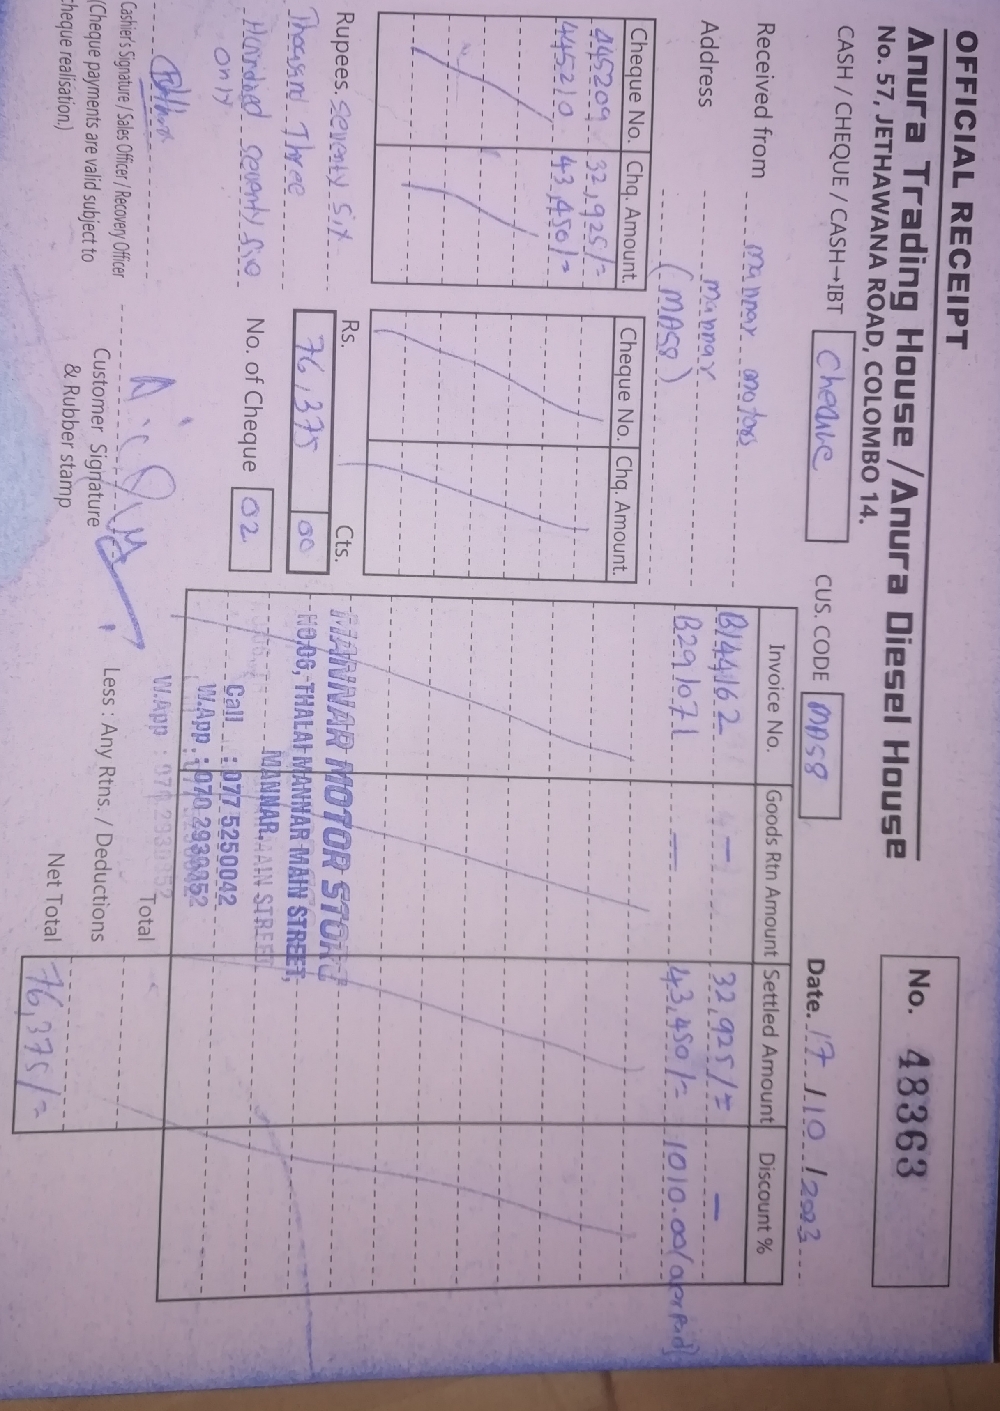 OFFICIAL RECEIPT
Anura Trading House / Anura Diesel House
No. 57, JETHAWANA ROAD, COLOMBO 14.
No. 48363
CASH / CHEQUE / CASH→IBT Cheque CUS. CODE MA58 Date. 17/10/2023
Received from mannar motors
Address mannar
(MA58)
Cheque No. Chq. Amount.
445209 32,925/=
445210 43,450/=
Cheque No. Chq. Amount.
Invoice No. Goods Rtn Amount Settled Amount Discount %
B144162 — 32,925/= —
B291071 — 43,450/= 1010.00/
Rupees. Seventy six
Thousand Three
Hundred seventy five
only
Rs. Cts.
76,375 00
No. of Cheque 02
MANNAR MOTOR STORE
NO.06, THALAI MANNAR MAIN STREET,
MANNAR.
Call : 077 5250042
W.App : 070 2939352
Total
Less : Any Rtns. / Deductions
Net Total 76,375/=
Cashier's Signature / Sales Officer / Recovery Officer
(Cheque payments are valid subject to
cheque realisation.)
Customer Signature
& Rubber stamp